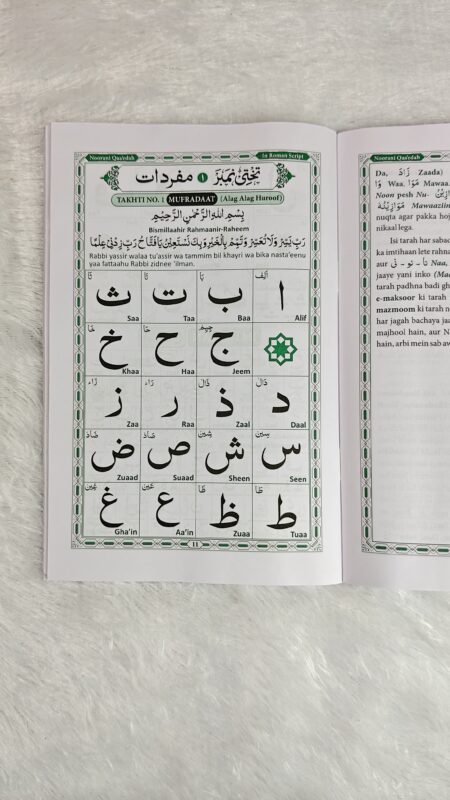 Noorani Qaa'edah
In Roman Script
تختی نمبر ١ مفردات
TAKHTI NO. 1 MUFRADAAT (Alag Alag Huroof)
بِسْمِ اللهِ الرَّحْمٰنِ الرَّحِيْمِ
Bismillaahir Rahmaanir-Raheem
رَبِّ يَسِّرْ وَلَا تُعَسِّرْ وَتَمِّمْ بِالْخَيْرِ وَبِكَ نَسْتَعِيْنُ يَا فَتَّاحُ رَبِّ زِدْنِيْ عِلْمًا
Rabbi yassir walaa tu'assir wa tammim bil khayri wa bika nasta'eenu
yaa fattaahu Rabbi zidnee 'ilman.
اَلِف بَا تَا ثَا
ا ب ت ث
Alif Baa Taa Saa
جِيْم حَا خَا
ج ح خ
Jeem Haa Khaa
دَال ذَال رَاء زَاء
د ذ ر ز
Daal Zaal Raa Zaa
سِيْن شِيْن صَاد ضَاد
س ش ص ض
Seen Sheen Suaad Zuaad
طَا ظَا عَيْن غَيْن
ط ظ ع غ
Tuaa Zuaa Aa'in Gha'in
11
Noorani Qaa'edah
Da, زَادَ Zaada)
وَا Waa, مَوَا Mawaa
Noon pesh Nu-
مَوَازِيْنُهٗ Mawaaziin
nuqta agar pakka hoj
nikaal lega.
Isi tarah har sabac
ka imtihaan lete rahna
aur تَا - تُو - تِى Naa,
jaaye yani inko (Mad
tarah padhna badi gh
e-maksoor ki tarah
mazmoom ki tarah n
har jagah bachaya jaa
majhool hain, aur N
hain, arbi mein sab aw